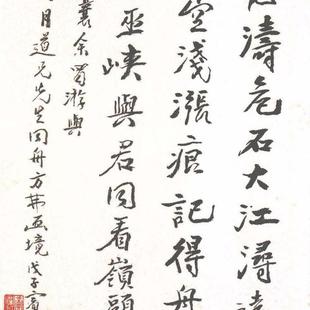 濤危石大江潯
空淺漲痕記得舟
巫峽與君同看嶺頭
曩余蜀游與
月道兄先生同舟方茀画境戊子